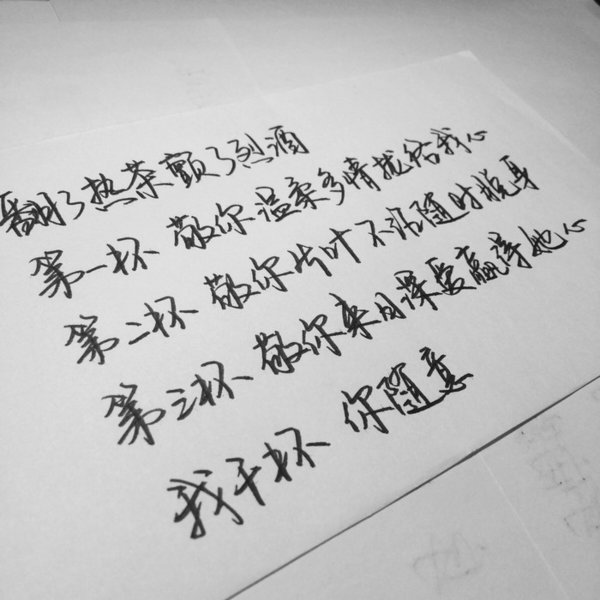 翻了热茶颤了烈酒
第一杯 敬你温柔多情我心
第二杯 敬你片叶不沾随时脱身
第三杯 敬你来日深爱赢得她心
我干杯 你随意